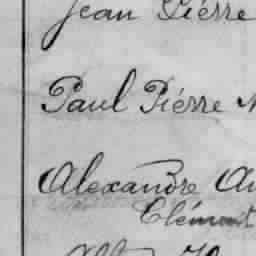 Jean Piérre
Paul Piérre
Alexandre
Clément